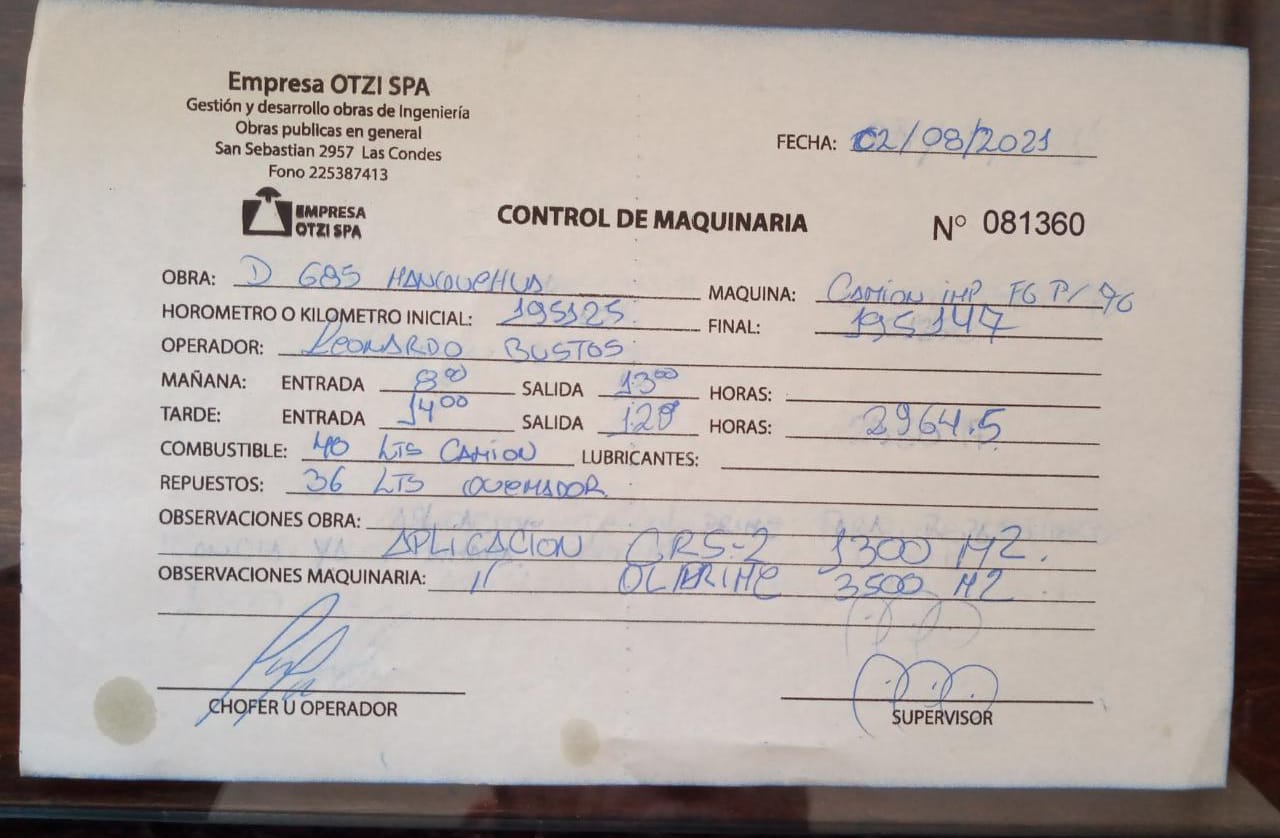 Empresa OTZI SPA
Gestión y desarrollo obras de Ingeniería
Obras publicas en general
San Sebastian 2957 Las Condes
Fono 225387413
FECHA: 02/08/2021
EMPRESA
OTZI SPA
CONTROL DE MAQUINARIA
N° 081360
OBRA: D 685 MANQUEHUA
MAQUINA: CAMION IMP FG P/ 76
HOROMETRO O KILOMETRO INICIAL: 195125
FINAL: 195147
OPERADOR: LEONARDO BUSTOS
MAÑANA: ENTRADA 8 00 SALIDA 13 00 HORAS:
TARDE: ENTRADA 14 00 SALIDA HORAS: 2964.5
COMBUSTIBLE: 40 LTS CAMION LUBRICANTES:
REPUESTOS: 36 LTS QUEMADOR
OBSERVACIONES OBRA:
APLICACION CRS-2 1300 M2.
OBSERVACIONES MAQUINARIA: 11 3500 M2
CHOFER U OPERADOR
SUPERVISOR